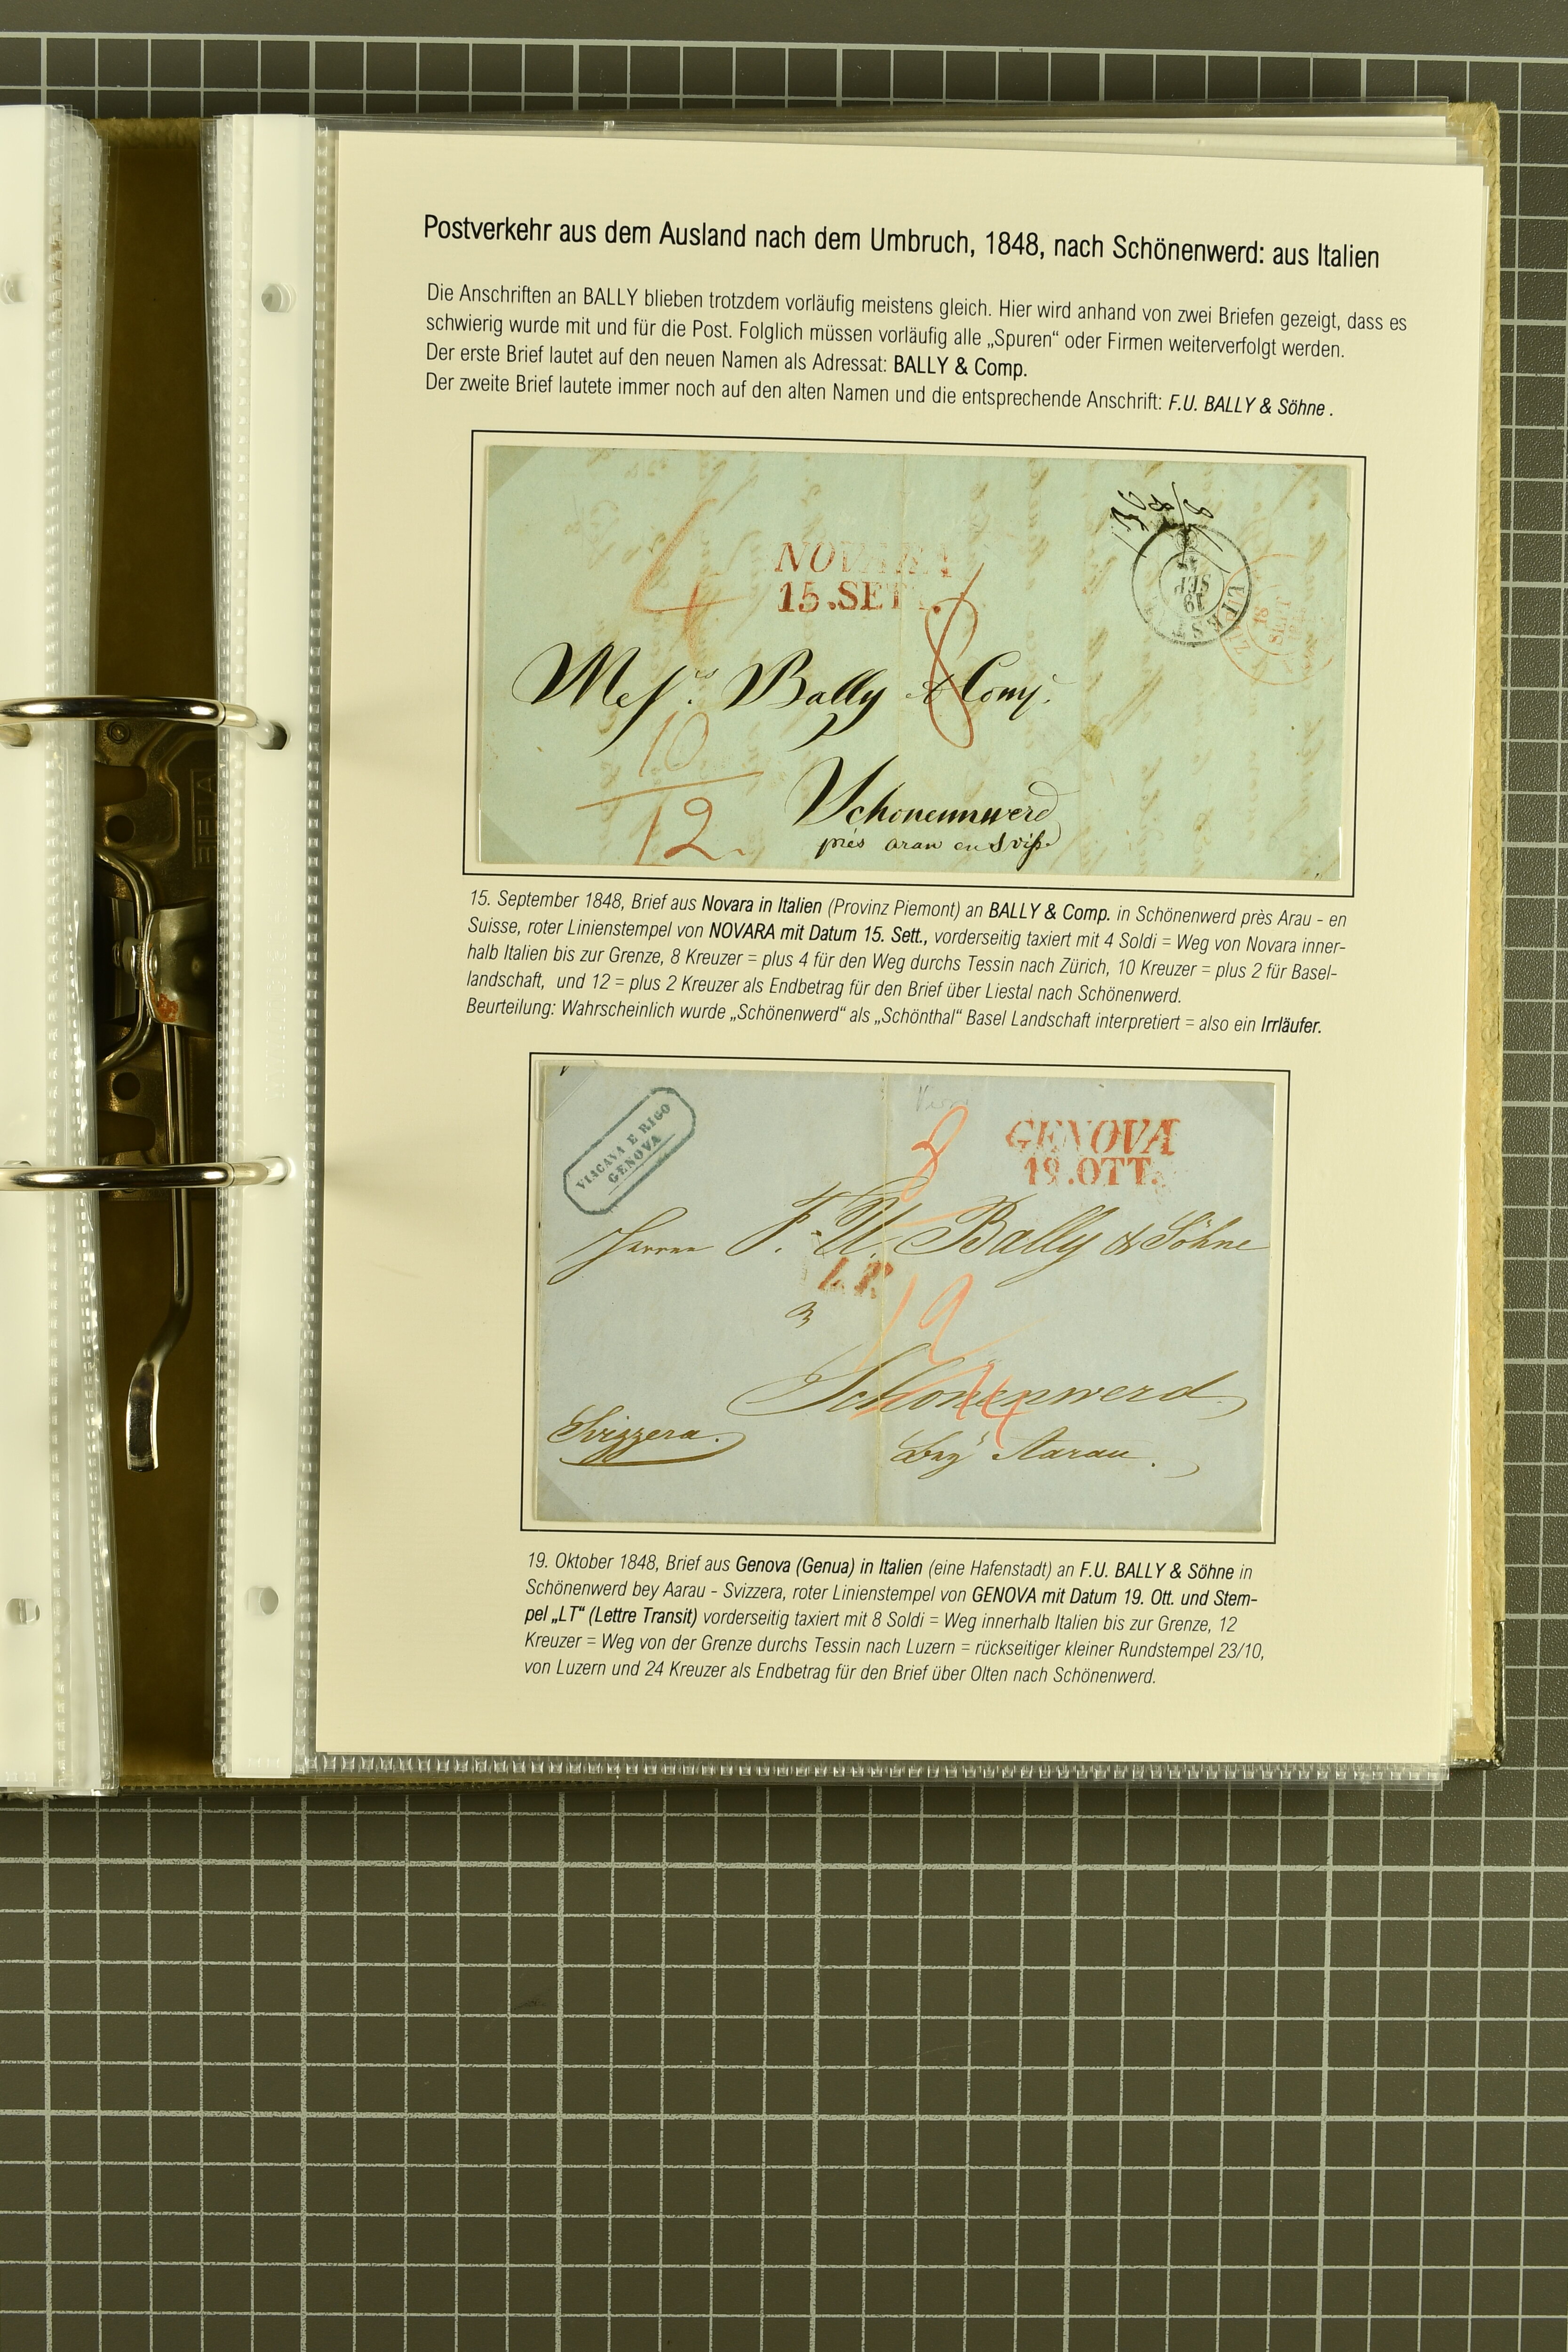 Postverkehr aus dem Ausland nach dem Umbruch, 1848, nach Schönenwerd: aus Italien
Die Anschriften an BALLY blieben trotzdem vorläufig meistens gleich. Hier wird anhand von zwei Briefen gezeigt, dass es
schwierig wurde mit und für die Post. Folglich müssen vorläufig alle „Spuren“ oder Firmen weiterverfolgt werden.
Der erste Brief lautet auf den neuen Namen als Adressat: BALLY & Comp.
Der zweite Brief lautete immer noch auf den alten Namen und die entsprechende Anschrift: F.U. BALLY & Söhne .
4
NOVARA
15.SETT.
8
19
SEP
Bally & Comp.
10
12
Schonennwerd
près arau en
15. September 1848, Brief aus Novara in Italien (Provinz Piemont) an BALLY & Comp. in Schönenwerd près Arau - en
Suisse, roter Linienstempel von NOVARA mit Datum 15. Sett., vorderseitig taxiert mit 4 Soldi = Weg von Novara inner-
halb Italien bis zur Grenze, 8 Kreuzer = plus 4 für den Weg durchs Tessin nach Zürich, 10 Kreuzer = plus 2 für Basel-
landschaft, und 12 = plus 2 Kreuzer als Endbetrag für den Brief über Liestal nach Schönenwerd.
Beurteilung: Wahrscheinlich wurde „Schönenwerd“ als „Schönthal“ Basel Landschaft interpretiert = also ein Irrläufer.
VIACAVA E RIGO
GENOVA
8
GENOVA
19.OTT.
Herren F. U. Bally & Söhne
L.T.
12
Schönenwerd
Svizzera.
bey Aarau.
19. Oktober 1848, Brief aus Genova (Genua) in Italien (eine Hafenstadt) an F.U. BALLY & Söhne in
Schönenwerd bey Aarau - Svizzera, roter Linienstempel von GENOVA mit Datum 19. Ott. und Stem-
pel „LT“ (Lettre Transit) vorderseitig taxiert mit 8 Soldi = Weg innerhalb Italien bis zur Grenze, 12
Kreuzer = Weg von der Grenze durchs Tessin nach Luzern = rückseitiger kleiner Rundstempel 23/10,
von Luzern und 24 Kreuzer als Endbetrag für den Brief über Olten nach Schönenwerd.